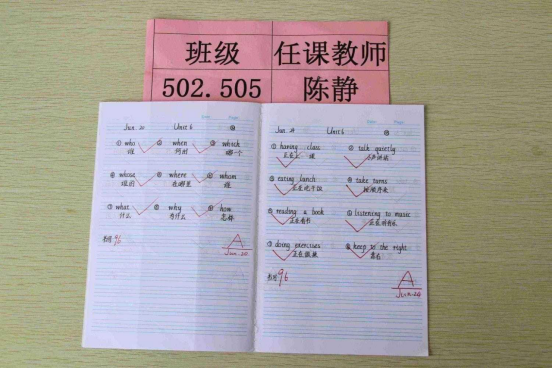 班级 任课教师
502.505 陈静
Jun. 20 Unit 6
① who ② when ③ which
谁 何时 哪一个
④ whose ⑤ where ⑥ whom
谁的 在哪里 谁
⑦ what ⑧ why ⑨ how
什么 为什么 怎样
96 A
Jun. 20
Unit 6
① having class ② talk quietly
正在上课 小声讲话
③ eating lunch ④ take turns
正在吃午饭 按顺序来
⑤ reading a book ⑥ listening to music
正在看书 正在听音乐
⑦ doing exercises ⑧ keep to the right
正在做操 靠右
96 A